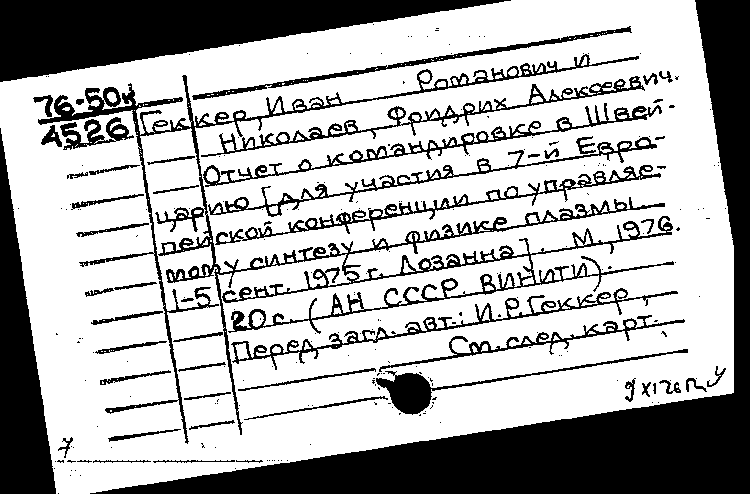 76-50к
4526
Геккер, Иван Романович и
Николаев, Фридрих Алексеевич.
Отчет о командировке в Швей-
царию [для участия в 7-й Евро-
пейской конференции по управляе-
мому синтезу и физике плазмы
1-5 сент. 1975 г. Лозанна]. М., 1976.
20 с. (АН СССР. ВИНИТИ).
Перед загл. авт.: И.Р. Геккер,
См. след. карт.
7